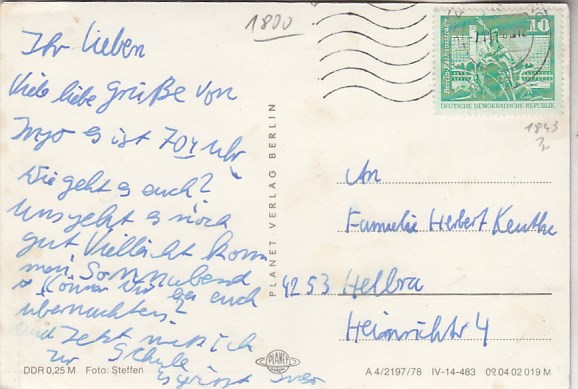 1800
10
Berlin-Fischerinsel
DEUTSCHE DEMOKRATISCHE REPUBLIK
1843
Ihr lieben
Viele liebe Grüße von
Ingo es ist 7 Uhr
Wie geht es euch?
Uns geht es noch
gut Vielleicht kom
men Sonnabend
Können wir bei euch
übernachten?
und Jetzt muß ich
zur Schule
PLANET VERLAG BERLIN
An
Familie Herbert
4253 Helbra
Heinrichtr 4
DDR 0,25 M Foto: Steffen
PLANET
A 4/2197/78 IV-14-483 09 04 02 019 M